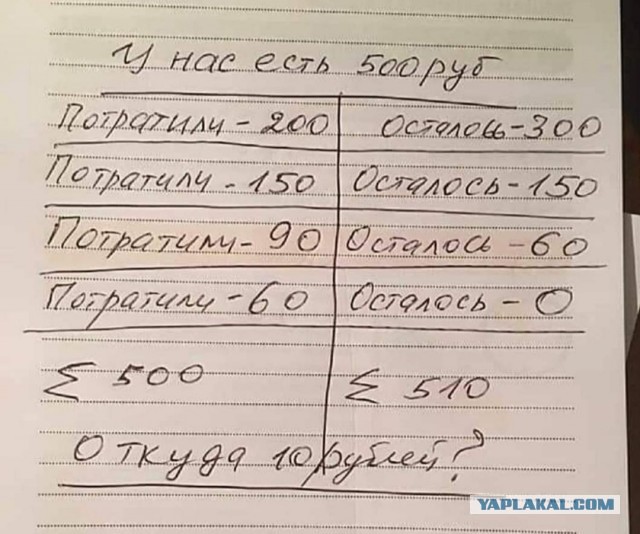 У нас есть 500 руб
Потратили - 200 Осталось - 300
Потратили - 150 Осталось - 150
Потратили - 90 Осталось - 60
Потратили - 60 Осталось - 0
Σ 500 Σ 510
Откуда 10 рублей?
YAPLAKAL.COM